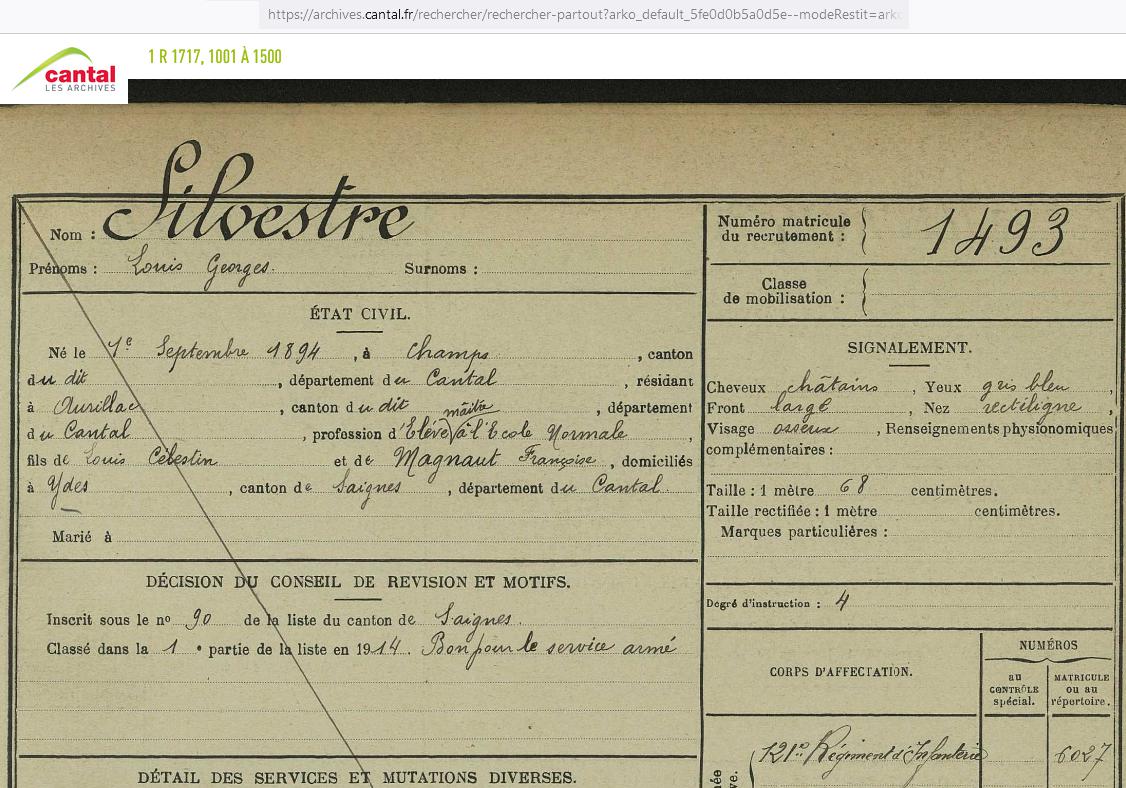 https://archives.cantal.fr/rechercher/rechercher-partout?arko_default_5fe0d0b5a0d5e--modeRestit=arko
cantal
LES ARCHIVES
1 R 1717, 1001 À 1500
Nom : Silvestre
Prénoms : Louis Georges. Surnoms :
ÉTAT CIVIL.
Né le 1e Septembre 1894, à Champs, canton
du dit, département du Cantal, résidant
à Aurillac, canton du dit, département
maître
du Cantal, profession d'Elève à l'Ecole Normale,
fils de Louis Célestin et de Magnaut Françoise, domiciliés
à Ydes, canton de Saignes, département du Cantal.
Marié à
DÉCISION DU CONSEIL DE REVISION ET MOTIFS.
Inscrit sous le no 90 de la liste du canton de Saignes.
Classé dans la 1e partie de la liste en 1914. Bon pour le service armé
DÉTAIL DES SERVICES ET MUTATIONS DIVERSES.
Numéro matricule
du recrutement : 1493
Classe
de mobilisation :
SIGNALEMENT.
Cheveux châtains, Yeux gris bleu,
Front large, Nez rectiligne,
Visage osseux, Renseignements physionomiques
complémentaires :
Taille : 1 mètre 68 centimètres.
Taille rectifiée : 1 mètre centimètres.
Marques particulières :
Degré d'instruction : 4
CORPS D'AFFECTATION.
NUMÉROS
au
CONTRÔLE
spécial.
MATRICULE
ou au
répertoire.
121e Régiment d'Infanterie 6027